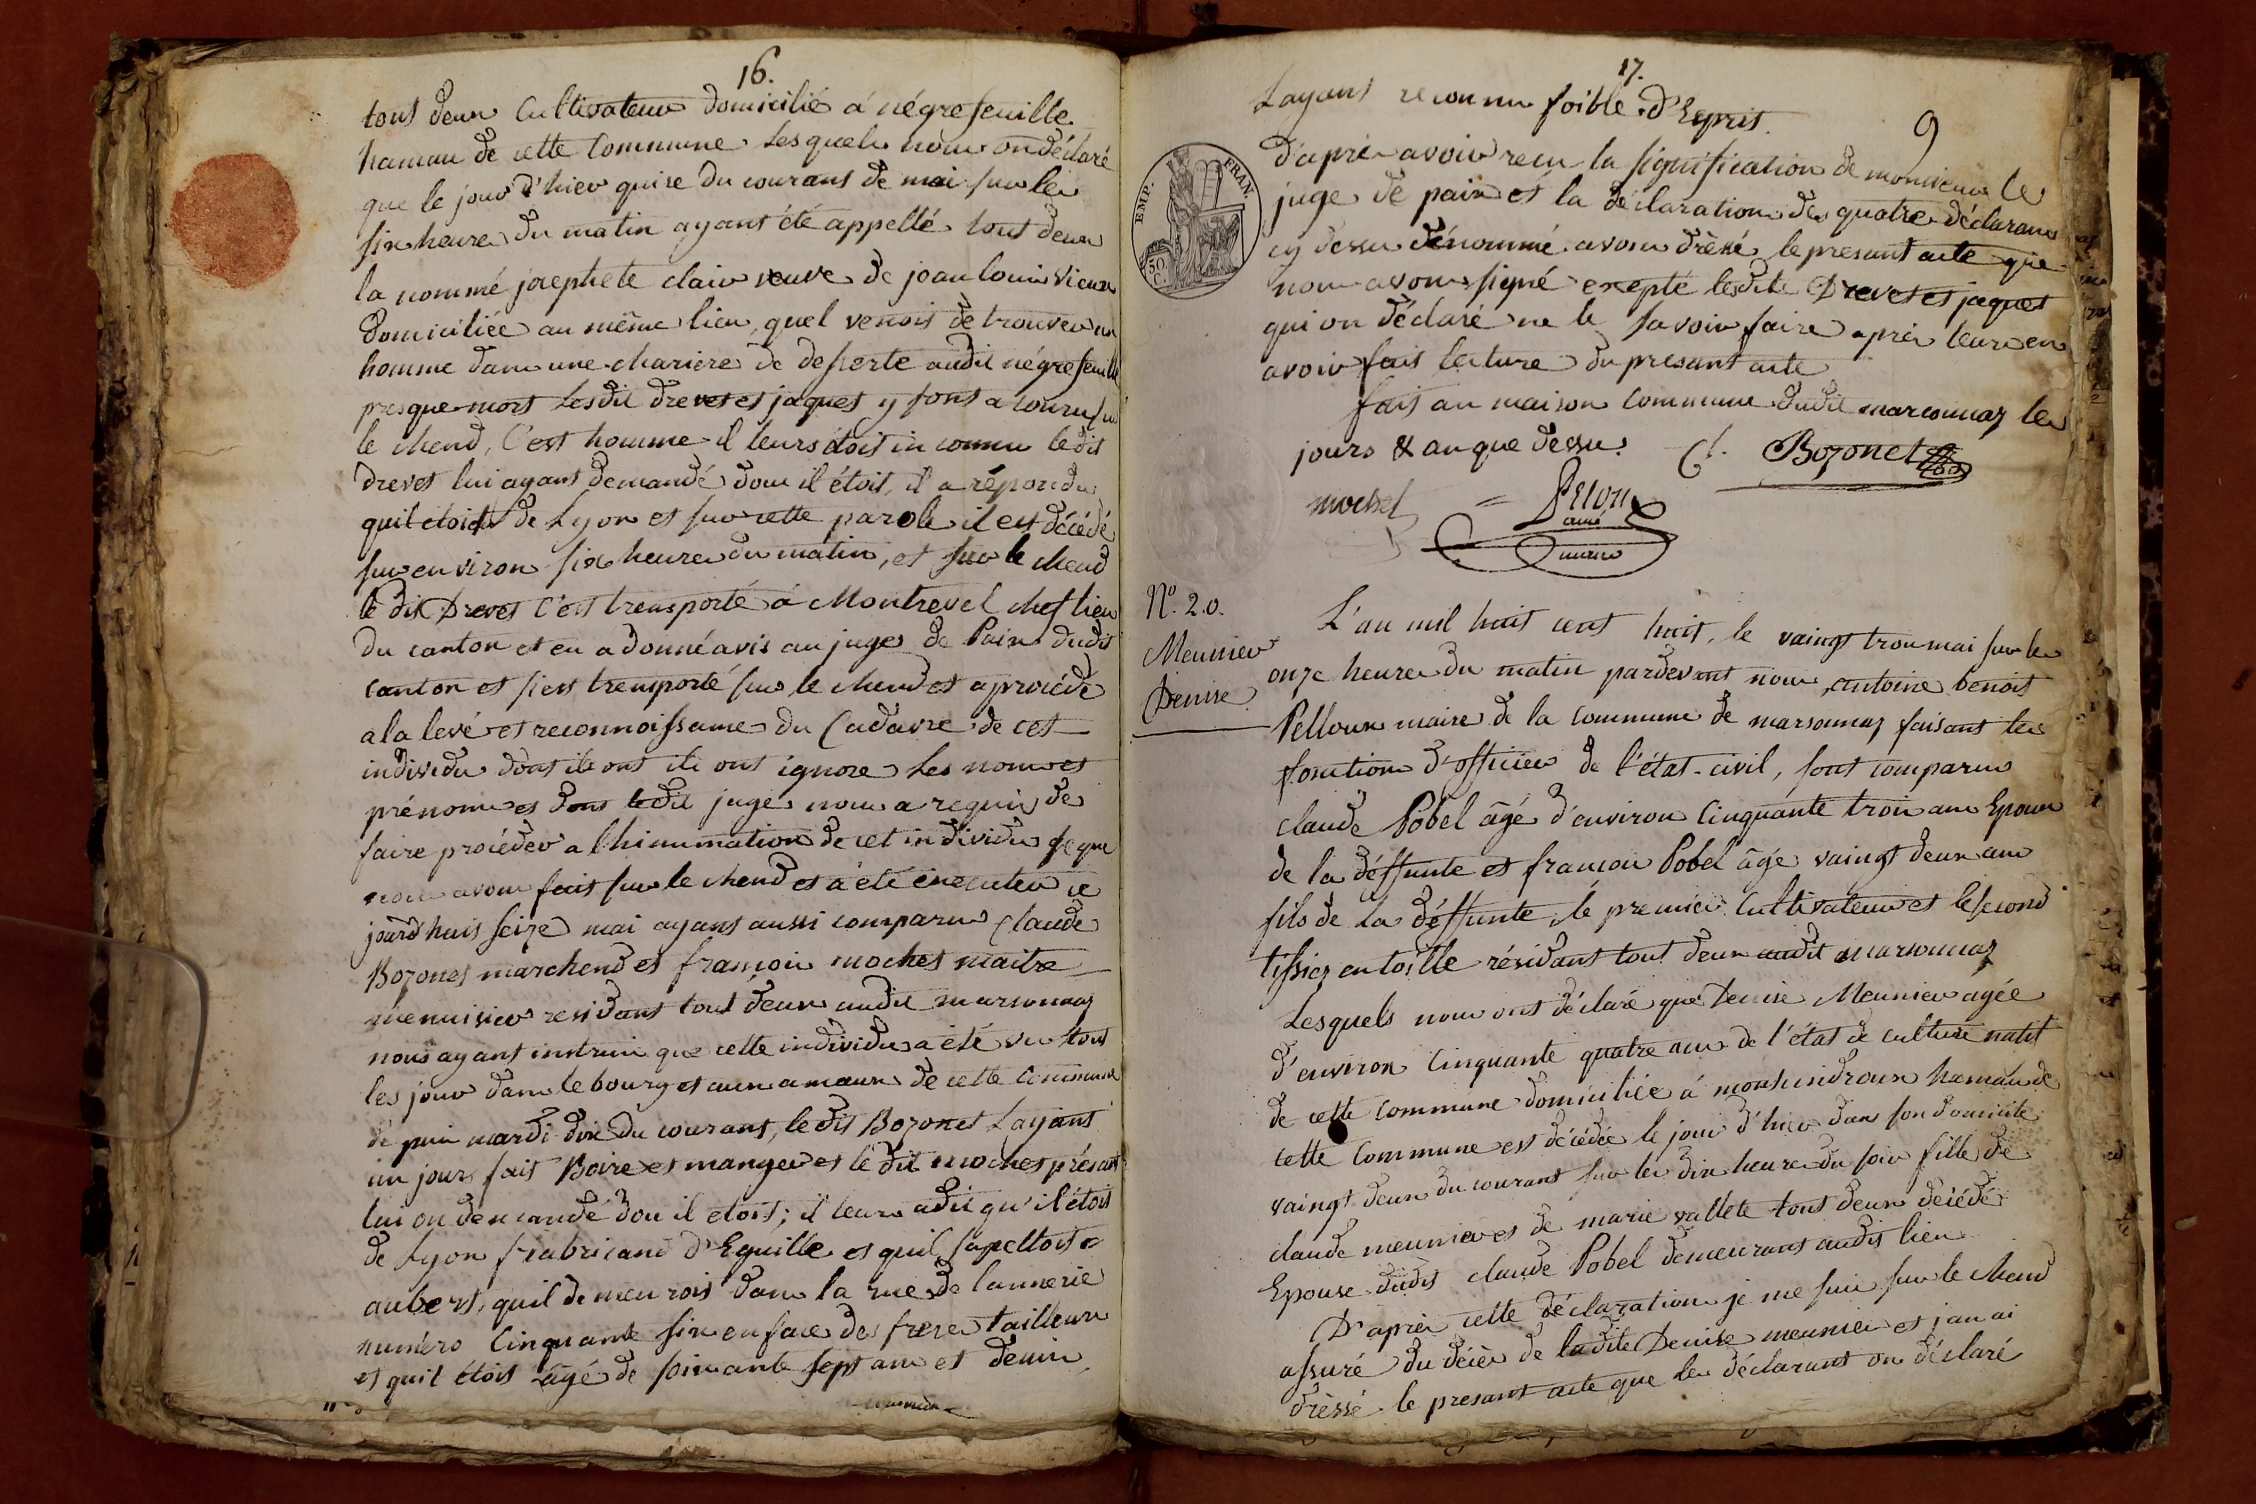 16.
tous deux Cultivateur domicilié à négrefeuille
hamau de cette Commune Lesquels nous on déclaré
que le jour d'hier quise du courant de mai sur les
six heure du matin ayant été appellé tous deux
la nommé josephete clair veuve de jean louis vieux
domiciliée au même lieu, quel venois de trouver un
homme dans une chariere de desserte audit négrefeuille
presque mort Lesdit drevet et jaques y sont acouru sur
le chend, C'est homme il leurs étoit inconnu ledit
drevet lui ayant demandé dou il étoit, il a répondu
quil etoit de Lyon et sur cette parole il est décédé
sur environ six heure du matin, et sur le chend
le dit Drevet C'est transporté à Montrevel chef lieu
du canton et en a donné avis au juge de Paix dudit
canton et s'est transporté sur le chend et a procédé
a la levé et reconnoissance du Cadavre de cet
individu dont ils ont ils ont ignore les nom et
prénom et dont ledit juge nous a requis de
faire procéder a l'hinnumation de cet individu se que
nous avons fait sur le chend et a été executer ce
jourd'huis seize mai ayant aussi comparu Claude
Bozonet marchend et françois mochet maitre
menuisier residant tous deux audit marsonnaz
nous ayant instruis que cette individu a été vu tout
les jour dans le bourg et aux amaux de cette Commune
de puis mardi dix du courant, le dit Bozonet Layant
un jour fait Boire et manger et le dit mochet présant
lui on demandé dou il etoit; il leur a dit qu'il étoit
de Lyon frabricant d'Eguille et quil sapelloit
aubert, quil demeurois dans la rue de lannerie
numéro Cinquante six en face des frere tailleur
et quil étoit âgé de soixante sept ans et demis
17.
9
Layant reconnu foible d'Esprit.
d'aprè avoir recu la signification de monsieur le
juge de paix et la déclaration des quatre déclarans
cy dessu dénommé avons drèssé le presant acte que
nous avons signé exepté lesdit Drevet et jaques
qui on déclaré ne le savoir faire aprèr leur en
avoir fait lecture du presant acte
fait au maison Commune dudit marsonnaz les
jours & an que dessu. Cl. Bozonet
mochet
EMP. FRAN.
50. C.
N.º 20.
Meunier
Denise
L'an mil huit cent huit, le vaingt trois mai sur les
onze heure du matin pardevant nous, antoine benoit
Pelloux maire de la commune de marsonnaz faisant les
fonction d'officier de l'état-civil, sont comparu
claude Pobel âgé d'environ Cinquante trois ans Epoux
de la déffunte et françois Pobel âgé vaingt deux ans
fils de la déffunte, le premier Cultivateur et le second
tissier en toille résidant tous deux audit marsonnaz
Lesquels nous ont déclaré que Denise Meunier agée
d'environ Cinquante quatre ans de l'état de culture natif
de cette commune domiciliée à hamau de
cette Commune est décédée le jour d'hier dans son domicile
vaingt deux du courant sur les dix heure du soir fille de
claude meunier et de marie vallete tous deux décédé
Epouse dudit claude Pobel demeurant audit lieu
D'aprèr cette déclaration je me suis sur le chend
assuré du décèr de ladite Denise meunier et jan ai
drèssé le presant acte que les déclarant on déclaré